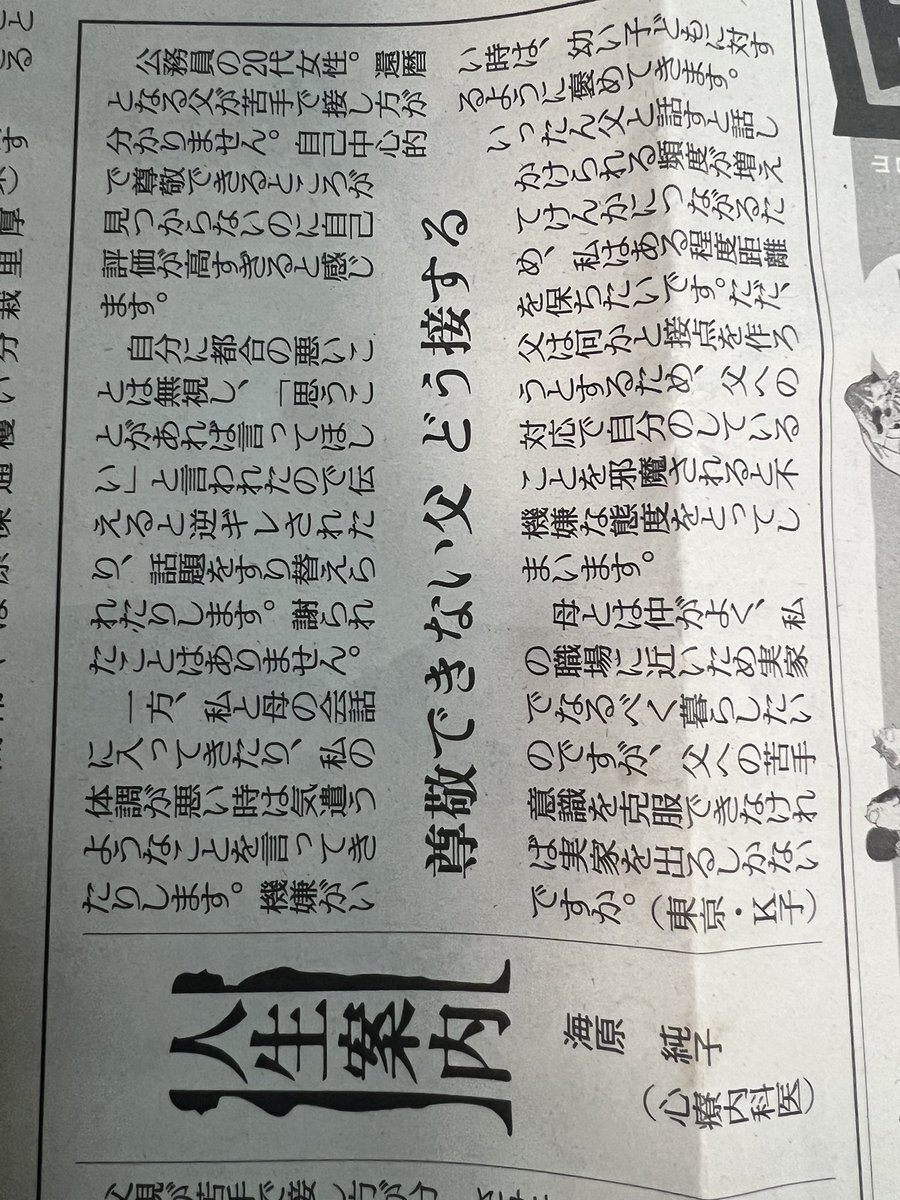 人生案内
海原 純子
(心療内科医)
尊敬できない父 どう接する
公務員の20代女性。還暦
となる父が苦手で接し方が
分かりません。自己中心的
で尊敬できるところが
見つからないのに自己
評価が高すぎると感じ
ます。
自分に都合の悪いこ
とは無視し、「思うこ
とがあれば言ってほし
い」と言われたので伝
えると逆ギレされた
り、話題をすり替えら
れたりします。謝られ
たことはありません。
一方、私と母の会話
に入ってきたり、私の
体調が悪い時は気遣う
ようなことを言ってき
たりします。機嫌がい
い時は、幼い子どもに対す
るように褒めてきます。
いったん父と話すと話し
かけられる頻度が増え
てけんかにつながるた
め、私はある程度距離
を保ちたいです。ただ、
父は何かと接点を作ろ
うとするため、父への
対応で自分のしている
ことを邪魔されると不
機嫌な態度をとってし
まいます。
母とは仲がよく、私
の職場に近いため実家
でなるべく暮らしたい
のですが、父への苦手
意識を克服できなけれ
ば実家を出るしかない
ですか。(東京・K子)